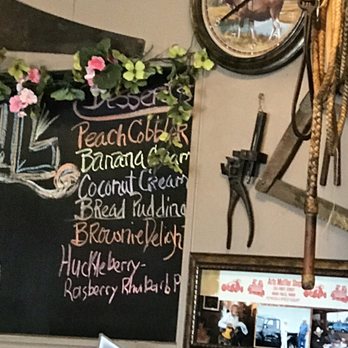 Desserts
Peach Cobbler
Banana Cream
Coconut Cream
Bread Pudding
Brownie Delight
Huckleberry-
Rasberry Rhubarb P